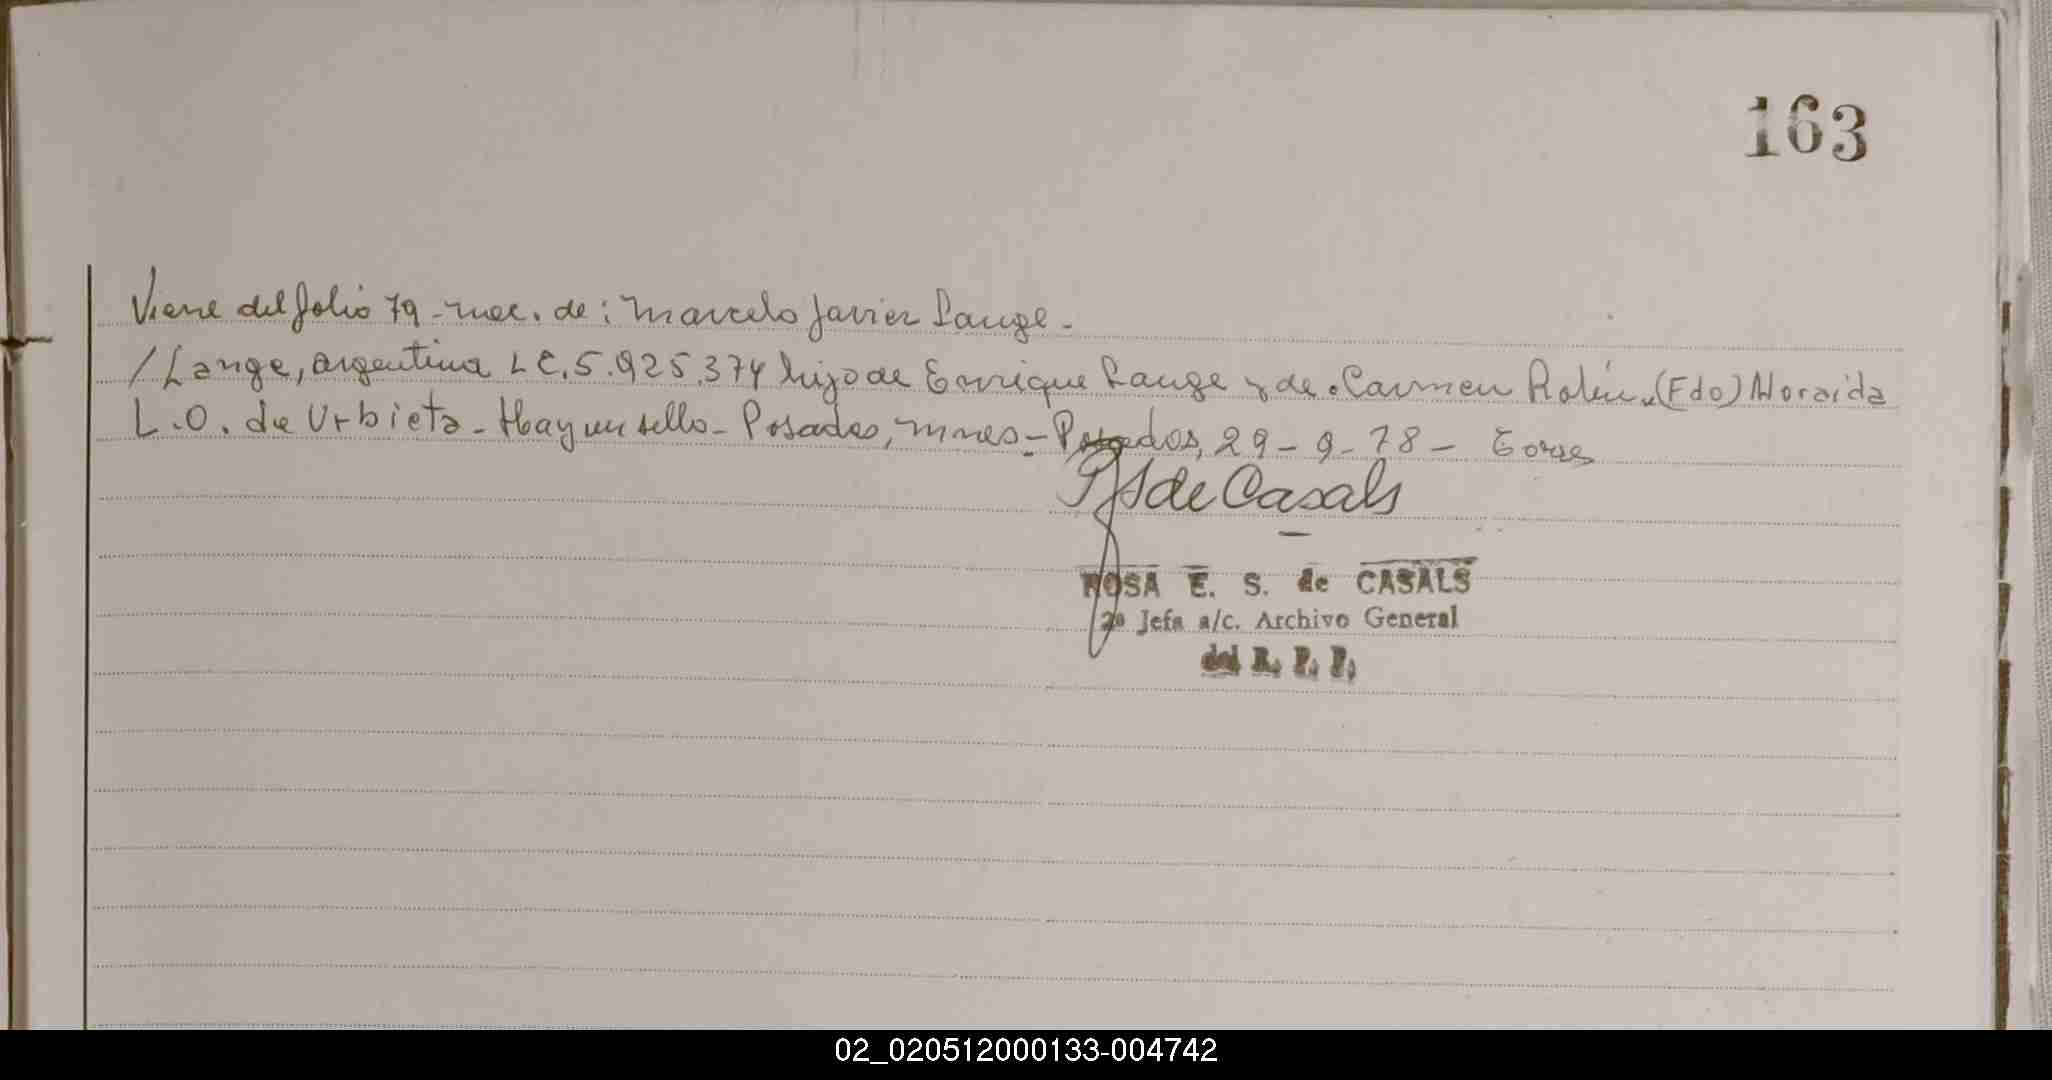 163
Viene del folio 79 - nac. de: Marcelo Javier Lange.-
/Lange, argentina L C. 5.925.374 hijo de Enrique Lange y de Carmen Rolón. (Fdo) Noraida
L.O. de Urbieta - Hay un sello - Posadas, Mnes - Posadas, 29 - 9 - 78 -
de Casals
ROSA E. S. de CASALS
2ª Jefa a/c. Archivo General
del R. P. P.
02_020512000133-004742